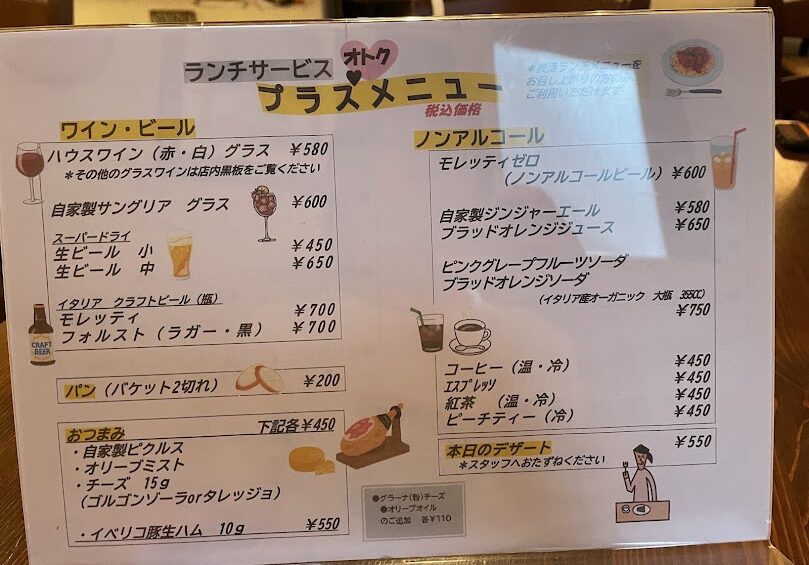 ランチサービス
オトク
プラスメニュー
税込価格
*表裏ランチメニューを
お召し上がりの方のみ
ご利用いただけます
ワイン・ビール
ハウスワイン（赤・白）グラス ￥580
*その他のグラスワインは店内黒板をご覧ください
自家製サングリア グラス ￥600
スーパードライ
生ビール 小 ￥450
生ビール 中 ￥650
イタリア クラフトビール（瓶）
モレッティ ￥700
フォルスト（ラガー・黒） ￥700
CRAFT
BEER
パン（バケット2切れ） ￥200
おつまみ 下記各￥450
・自家製ピクルス
・オリーブミスト
・チーズ 15g
（ゴルゴンゾーラorタレッジョ）
・イベリコ豚生ハム 10g ￥550
ノンアルコール
モレッティゼロ
（ノンアルコールビール） ￥600
自家製ジンジャーエール ￥580
ブラッドオレンジジュース ￥650
ピンクグレープフルーツソーダ
ブラッドオレンジソーダ
（イタリア産オーガニック 大瓶 355CC）
￥750
コーヒー（温・冷） ￥450
エスプレッソ ￥450
紅茶 （温・冷） ￥450
ピーチティー（冷） ￥450
本日のデザート ￥550
*スタッフへおたずねください
●グラーナ(粉)チーズ
●オリーブオイル
のご追加 各￥110